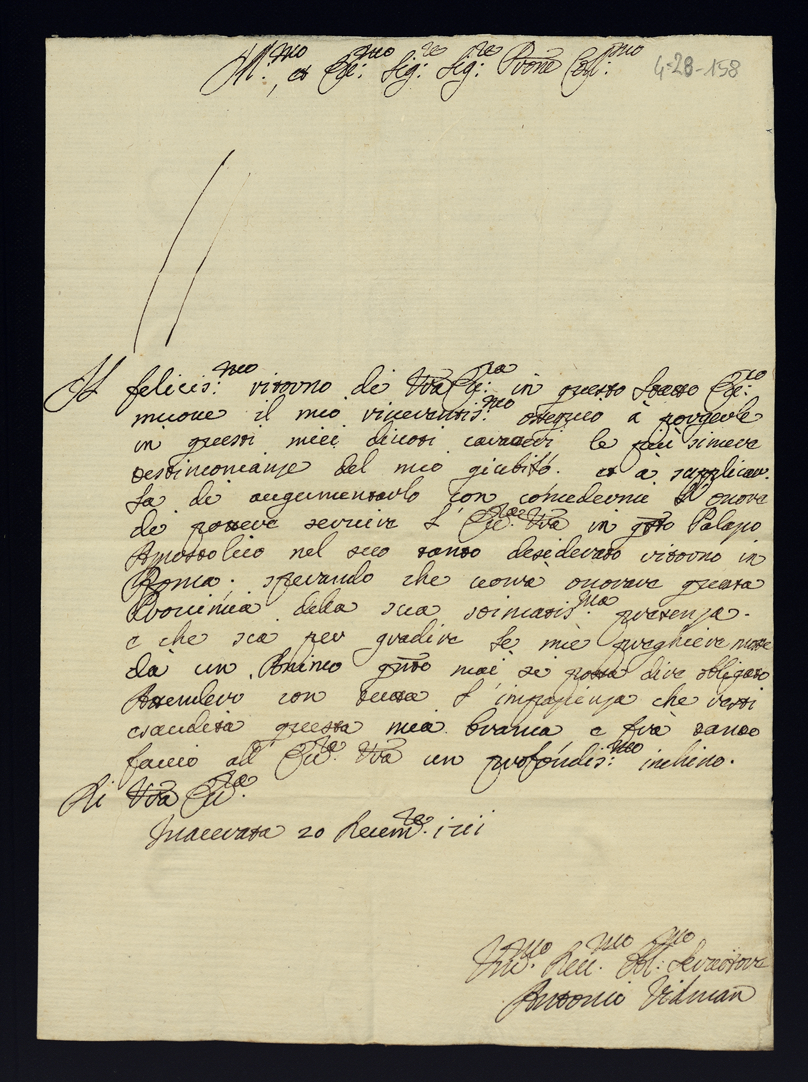 Ill.mo, et Ecc.mo Sig.re Sig.re Prone Col.mo
4-28-158
Il felicis.mo ritorno di Vra Ecc.za in questo Stato Ecc.co
muove il mio riverentis.mo ossequio à porgerle
in questi miei divoti caratteri le più sincere
testimonianze del mio giubilo. et a supplicar-
la di augumentarlo con concedermi l'onore
di potere servire l'Ecc.za Vra in qsto Palazo
Apostolico nel suo tanto desiderato ritorno in
Roma. sperando che vorrà onorare questa
Provincia della sua stimatis.ma presenza.
e che sia per gradire le mie preghiere mosse
da un Animo qnto mai si possa dire obligato
Attenderò con tutta l'impazienza che resti
esaudita questa mia brama e frà tanto
faccio all'Ecc.za Vra un profondis.mo inchino.
Di Vra Ecc.za
Macerata 20 Decem.re 1711
Um.mo Dev.mo Obl.mo Servitore
Antonio Vidman